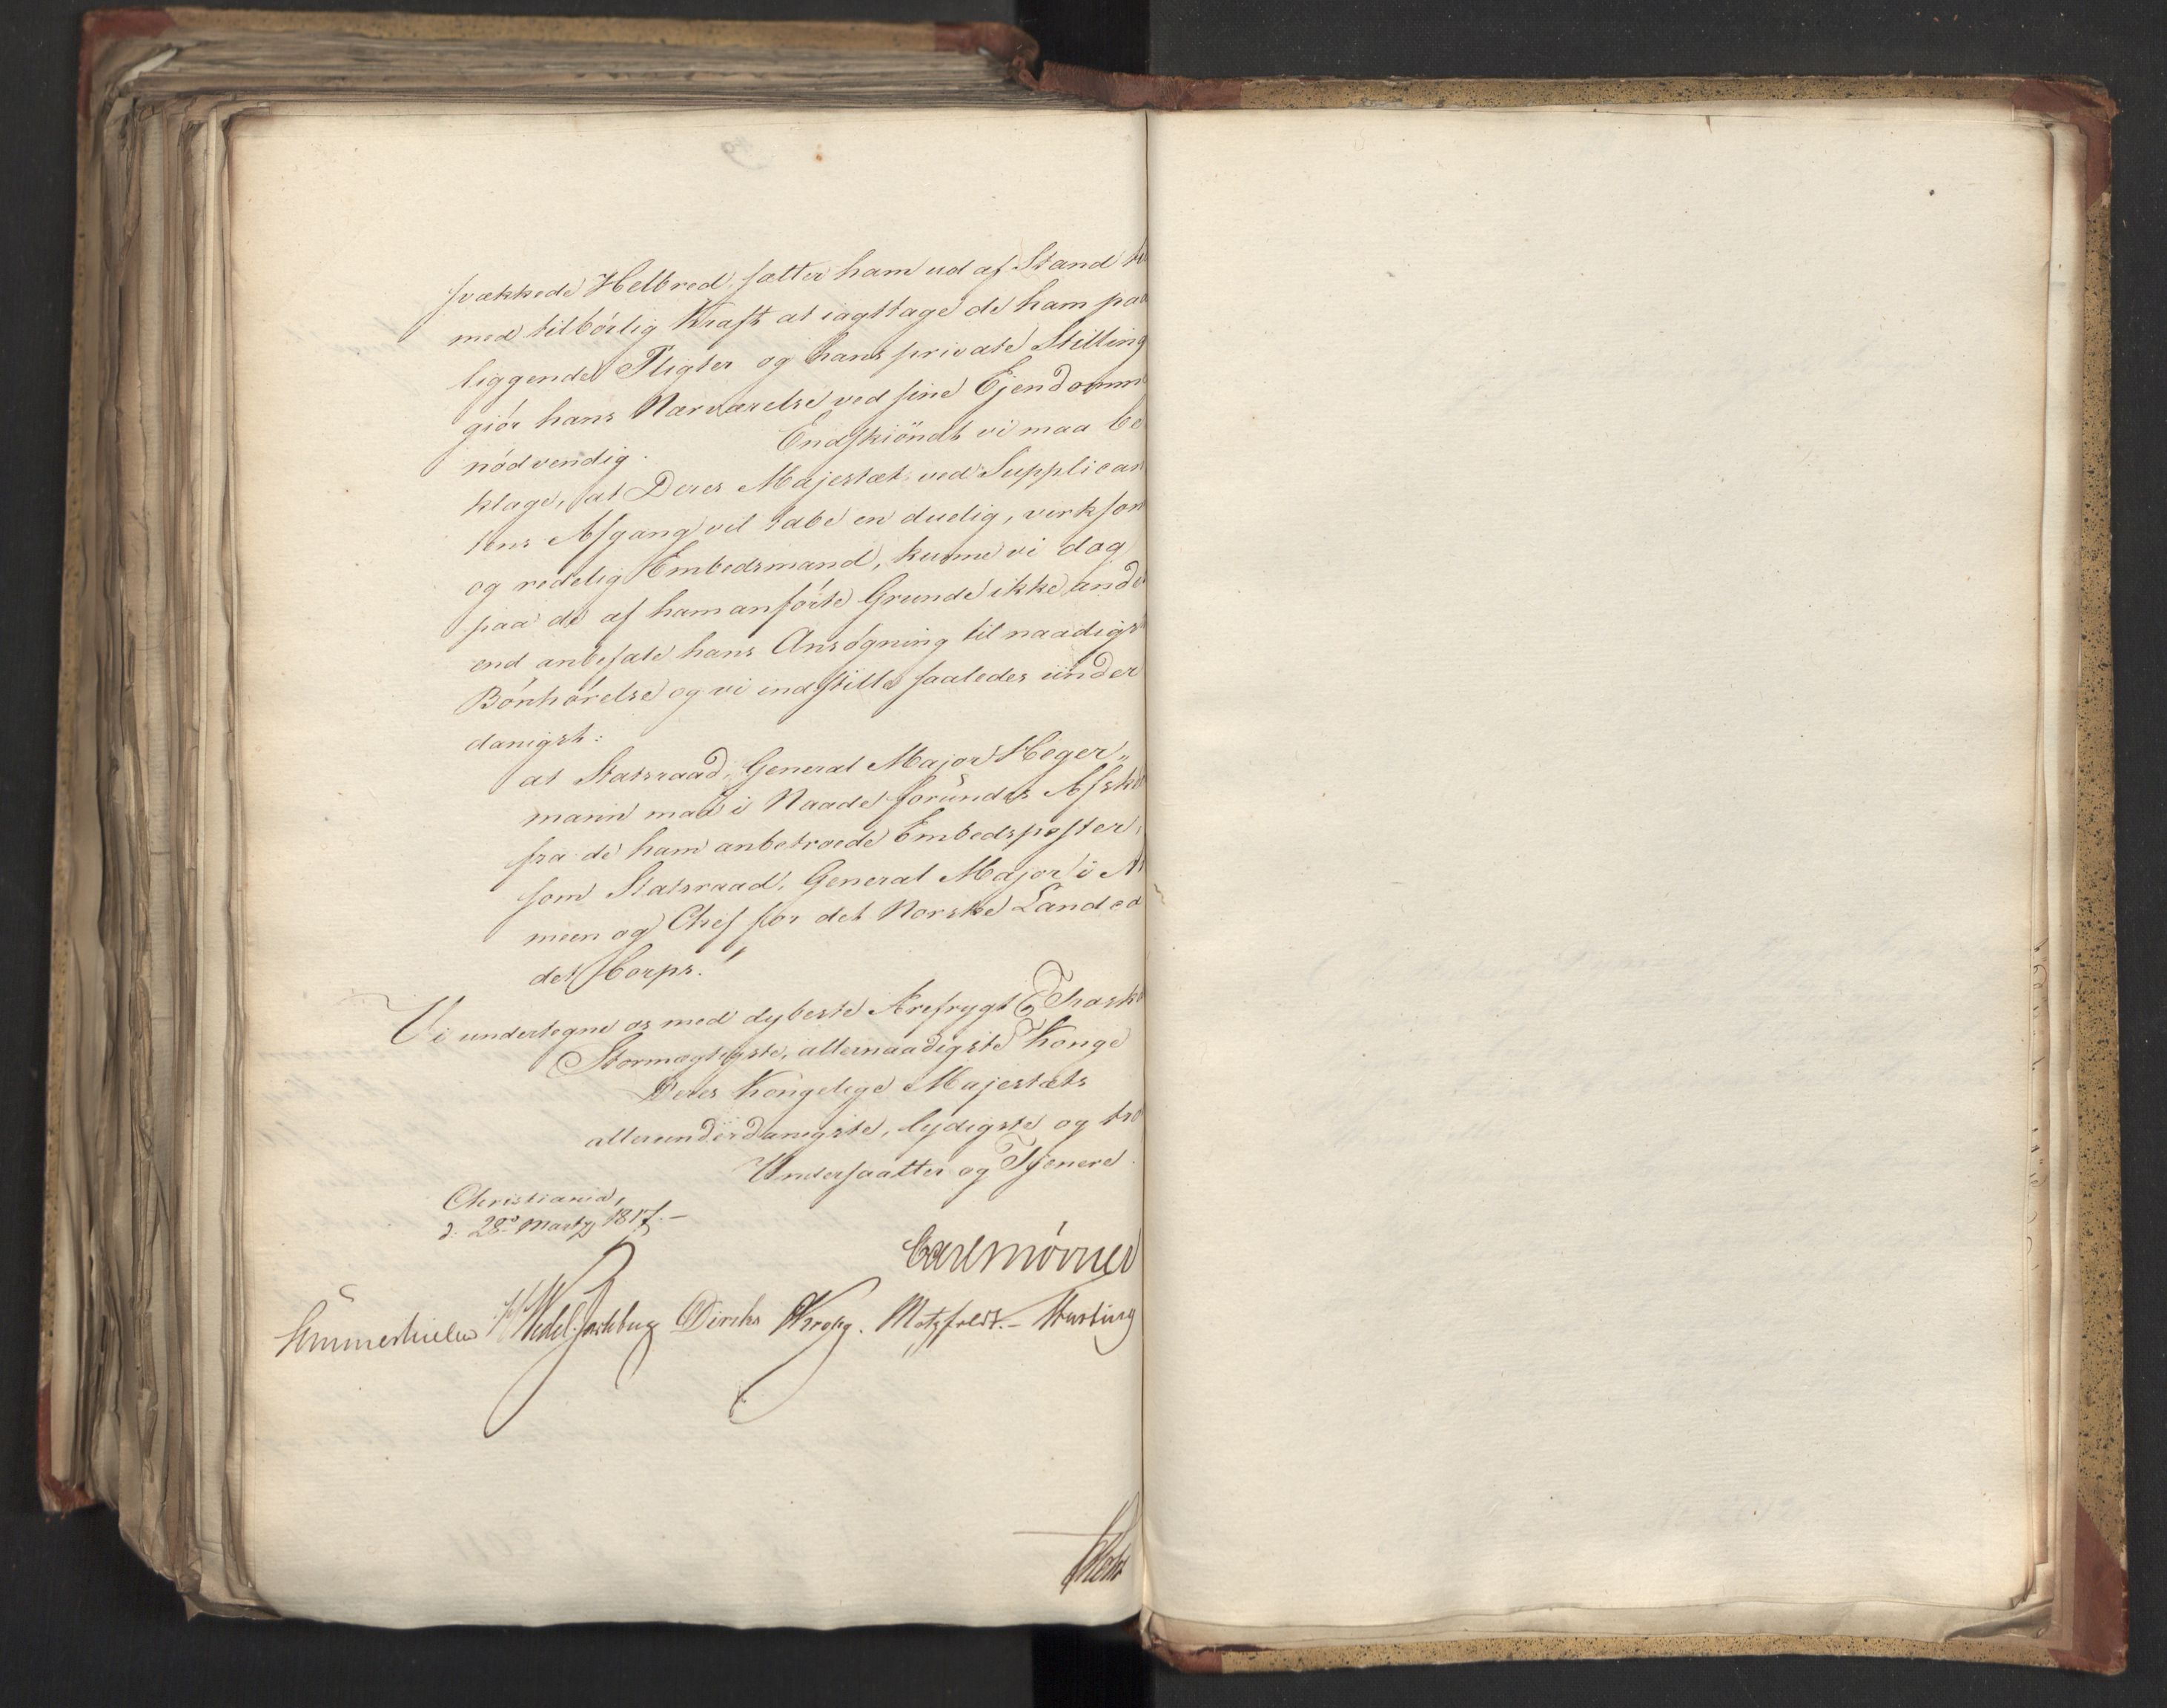 svækkede Helbred, sætter ham ud af Stand
med tilbörlig Kraft at iagttage de ham paa
liggende Pligter og hans private Stilling
giör hans Nærværelse ved sine Ejendomm
nödvendig. Endskiöndt vi maa be
klage, at Deres Majestæt ved Supplican
tens Afgang vil tabe en duelig, virksom
og redelig Embedsmand, kunne vi dog
paa de af ham anförte Grunde ikke ande
end anbefale hans Ansögning til naadigst
Bönhörelse og vi indstille saaledes under
danigst:
at Statsraad, General Major Heger„
mann maa i Naade forundes Afske
fra de ham anbetroede Embedsposter,
som Statsraad, General Major i Ar
meen og Chef for det Norske Landca
det Corps.
Vi undertegne os med dybeste Ærefrygt
Stormægtigste, allernaadigste Konge
Deres Kongelige Majestæts
allerunderdanigste, lydigste og tro
Undersaatter og Tjenere.
Christiania,
d: 28de Martz 1817.-
Carl Mörner
Sommerhielm Wedel Jarlsberg Diriks Krohg. Motzfeldt.-